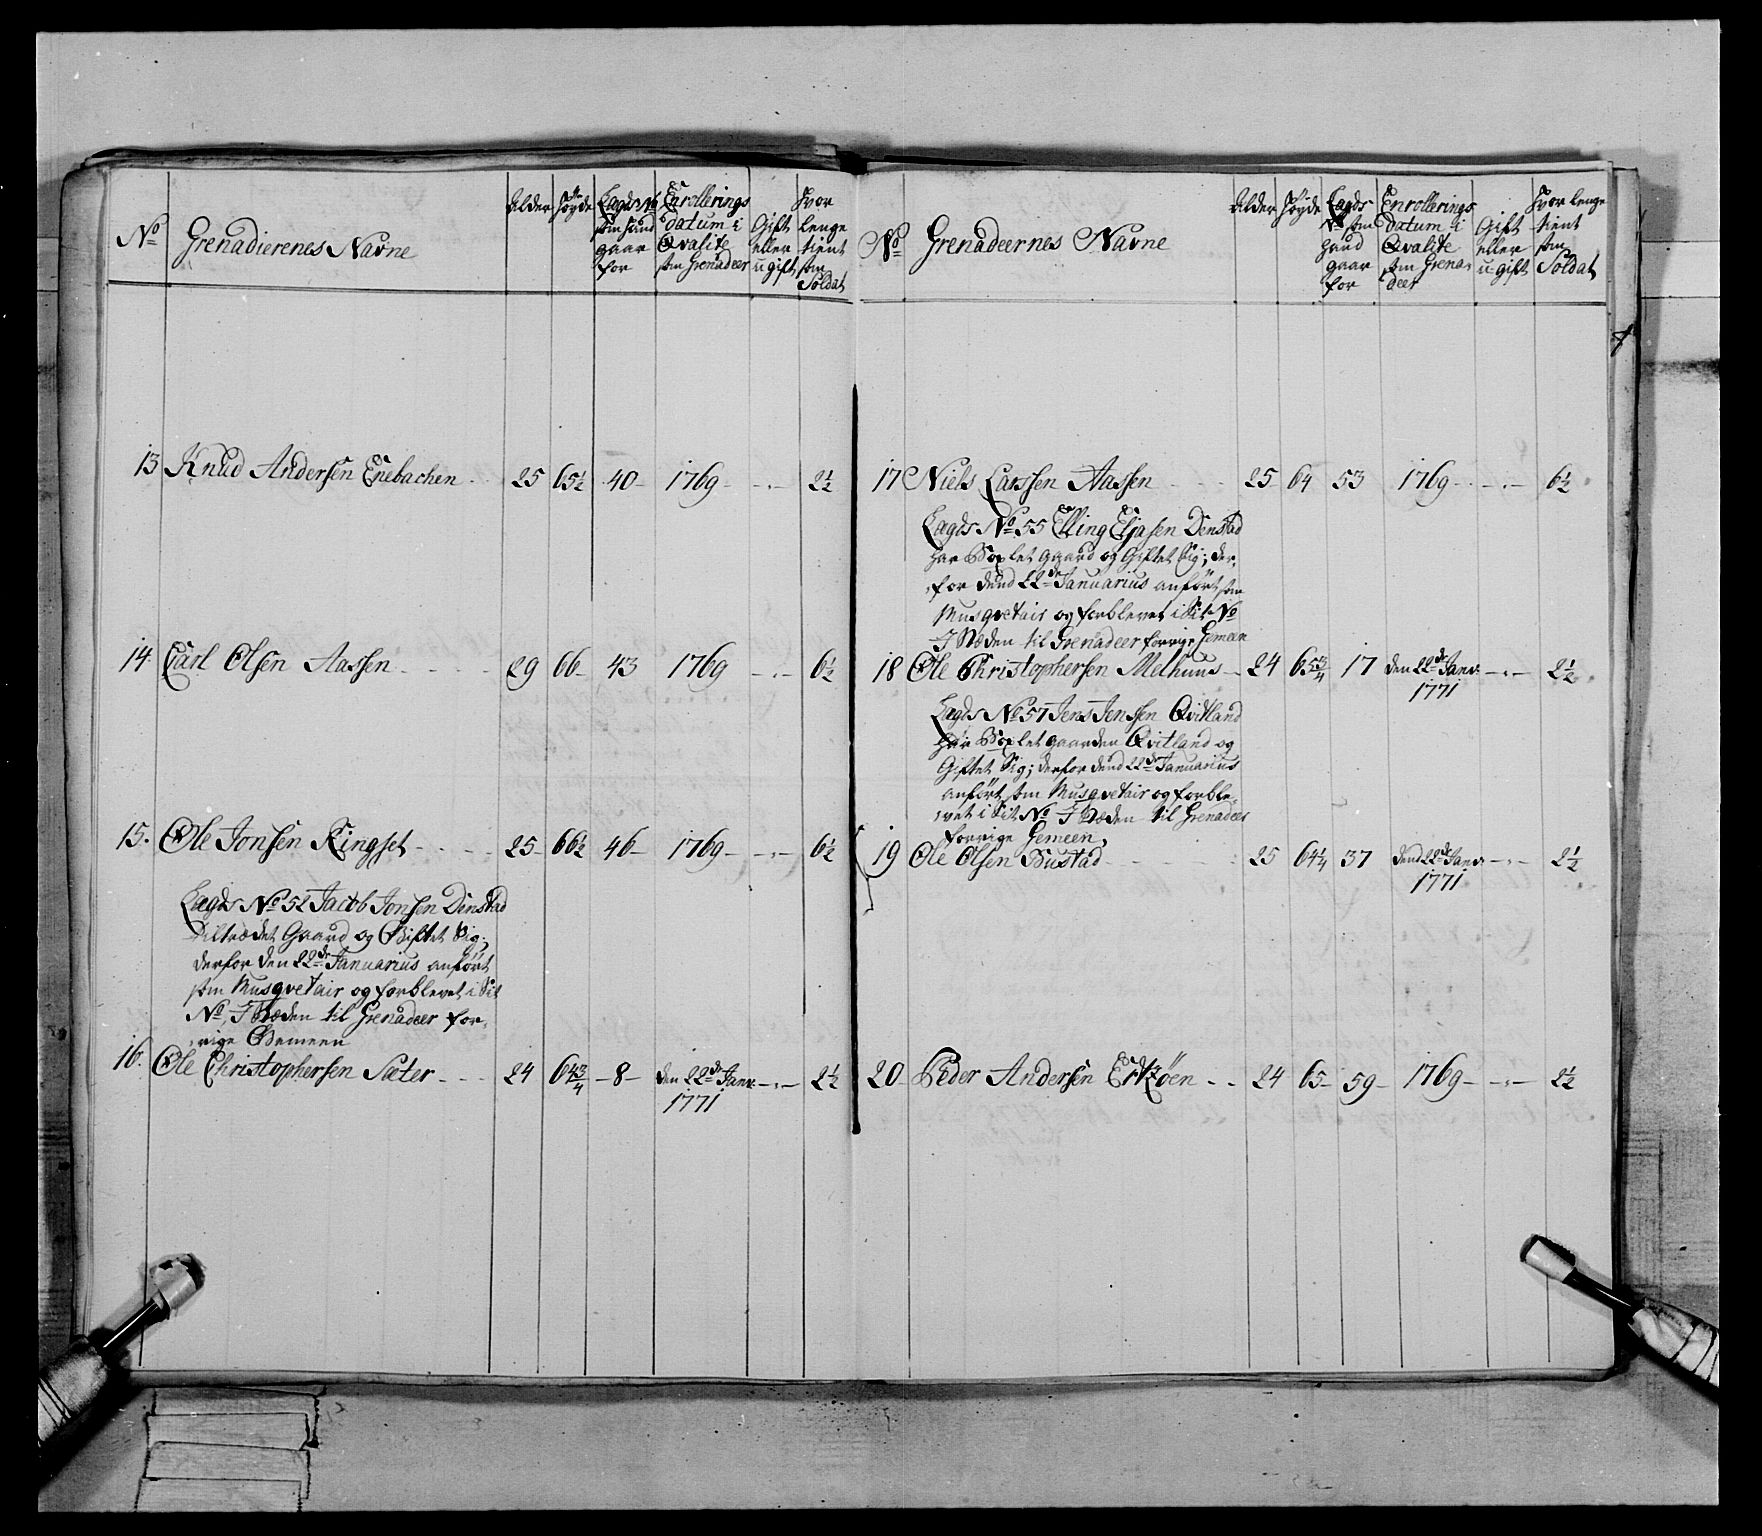 No Grenadierenes Navne Alder Høyde Lægds No som hand gaar for Enrollerings datum i Qvalite som Grenadeer Gift eller u-gift Hvor lenge tient som Soldat
13 Knud Andersen Enebachen 25 65½ 40 1769 2½
14 Carl Olsen Aassen 29 66 43 1769 6½
15. Ole Jonsen Ringset 25 66½ 46 1769 6½
Lægds No 52 Jacob Jonsen Dinstad
Tiltrædet Gaard og Giftet Sig,
derfor den 22de Januarius anført
som Musqvetair og forblevet i Sit
No, I Stæden til Grenadeer for-
rige Gemeen
16. Ole Christophersen Sæter 24 64¾ 8 den 22de Janr 1771 2½
No Grenadeernes Navne Alder Høyde Lægds No som hand gaar for Enrollerings datum i Qvalite som Grenadeer Gift eller u-gift Hvor lenge tient som Soldat
17 Niels Larssen Aassen 25 64 53 1769 6½
Lægds No 55 Elling Eljasen Denstad
har Bøxlet gaard og Giftet Sig; der-
for dend 22de Januarius anført som
Musqvetair og forblevet i Sit No
I Stæden til Grenadeer forrige Gemeen
18 Ole Christophersen Melhuus 24 65¾ 17 den 22de Janr 1771 2½
Lægds No 57 Jens Jenssen Qvitland
har Bøxlet gaarden Qvitland og
Giftet Sig; derfor dend 22de Januarius
anført som Musqvetair og forble-
vet i Sit No I Stæden til Grenadeer
forrige Gemeen,
19 Ole Olsen Bustad 25 64¼ 37 dend 22de Janr 1771 2½
20 Peder Andersen 24 65 59 1769 2½